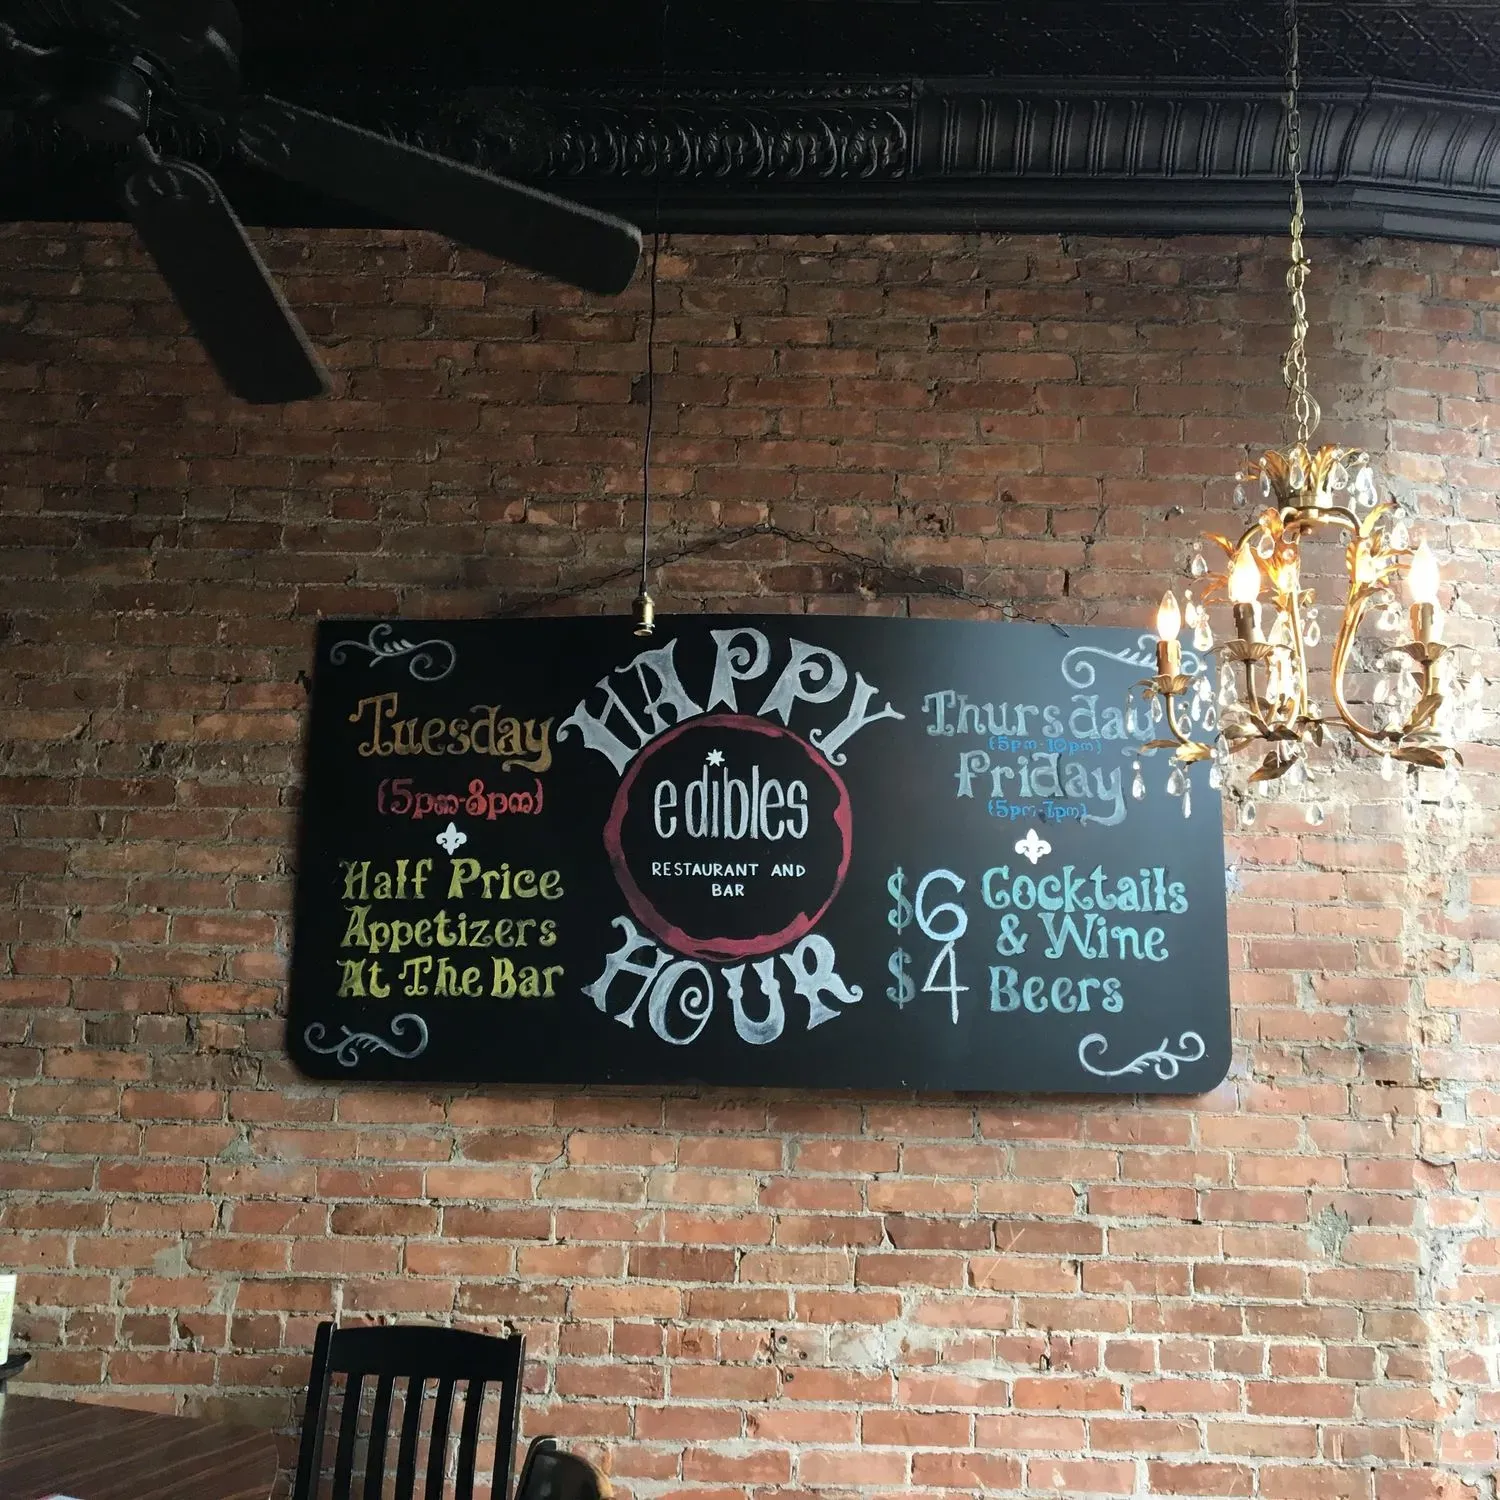 HAPPY
edibles
RESTAURANT AND
BAR
HOUR
Tuesday
(5pm-8pm)
Half Price
Appetizers
At The Bar
Thursday
(5pm-10pm)
Friday
(5pm-7pm)
$6 Cocktails
& Wine
$4 Beers